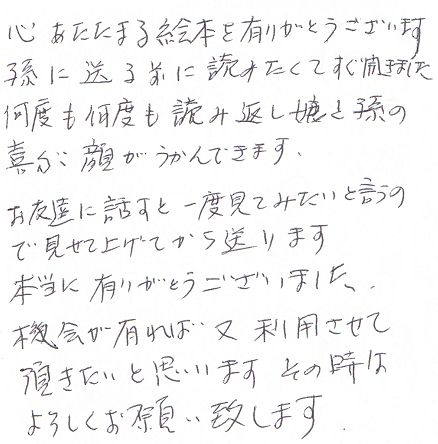 心あたたまる絵本を有りがとうございます
孫に送る前に読みたくてすぐ開きました
何度も何度も読み返し嬢と孫の
喜ぶ顔がうかんできます、
お友達に話すと一度見てみたいと言うの
で見せて上げてから送ります
本当に有りがとうございました、
機会が有れば又利用させて
頂きたいと思います その時は
よろしくお願い致します.